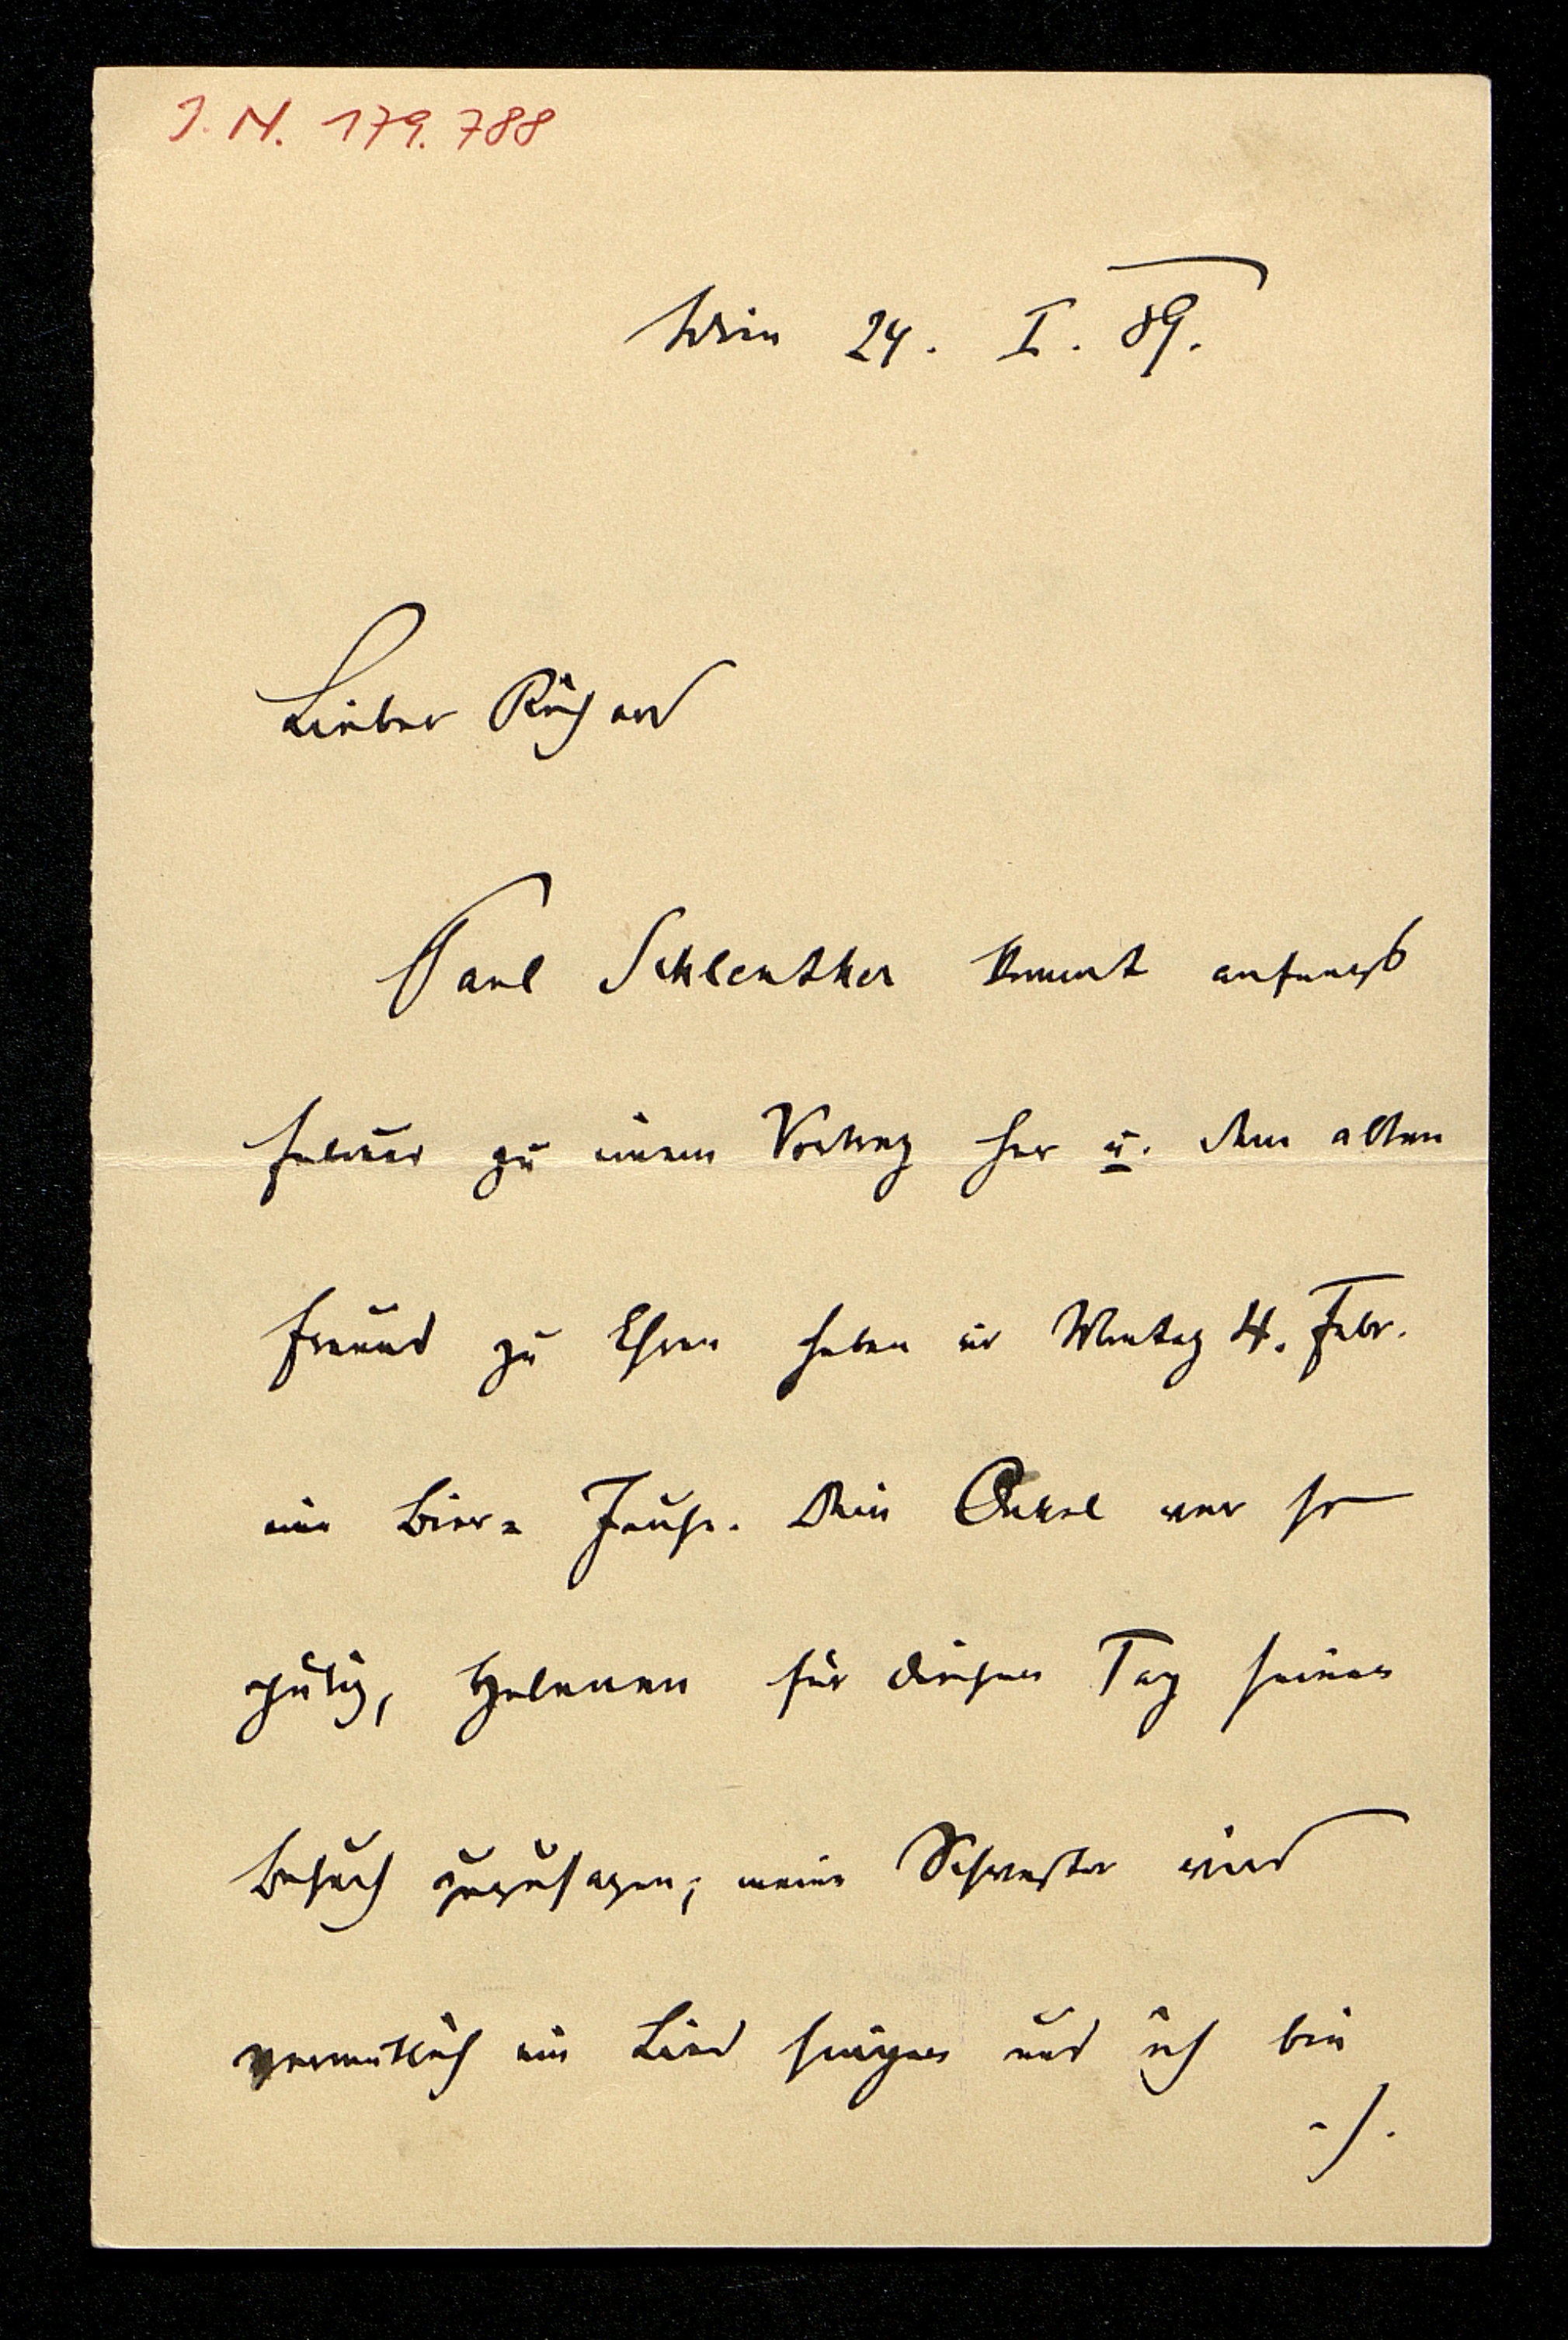 J. N. 179.788
Wien 24. I. 89.
Lieber Richard
Paul Schlenther kommt anfangs
Februar zu einem Vortrag her u. dem alten
Freund zu Ehren haben wir Montag 4. Febr.
eine Bier= Jause. Dein Onkel war so
gütig, Helenen für diesen Tag seinen
Besuch zuzusagen; meine Schwester wird
vermutlich ein Lied singen und ich bin
-/.